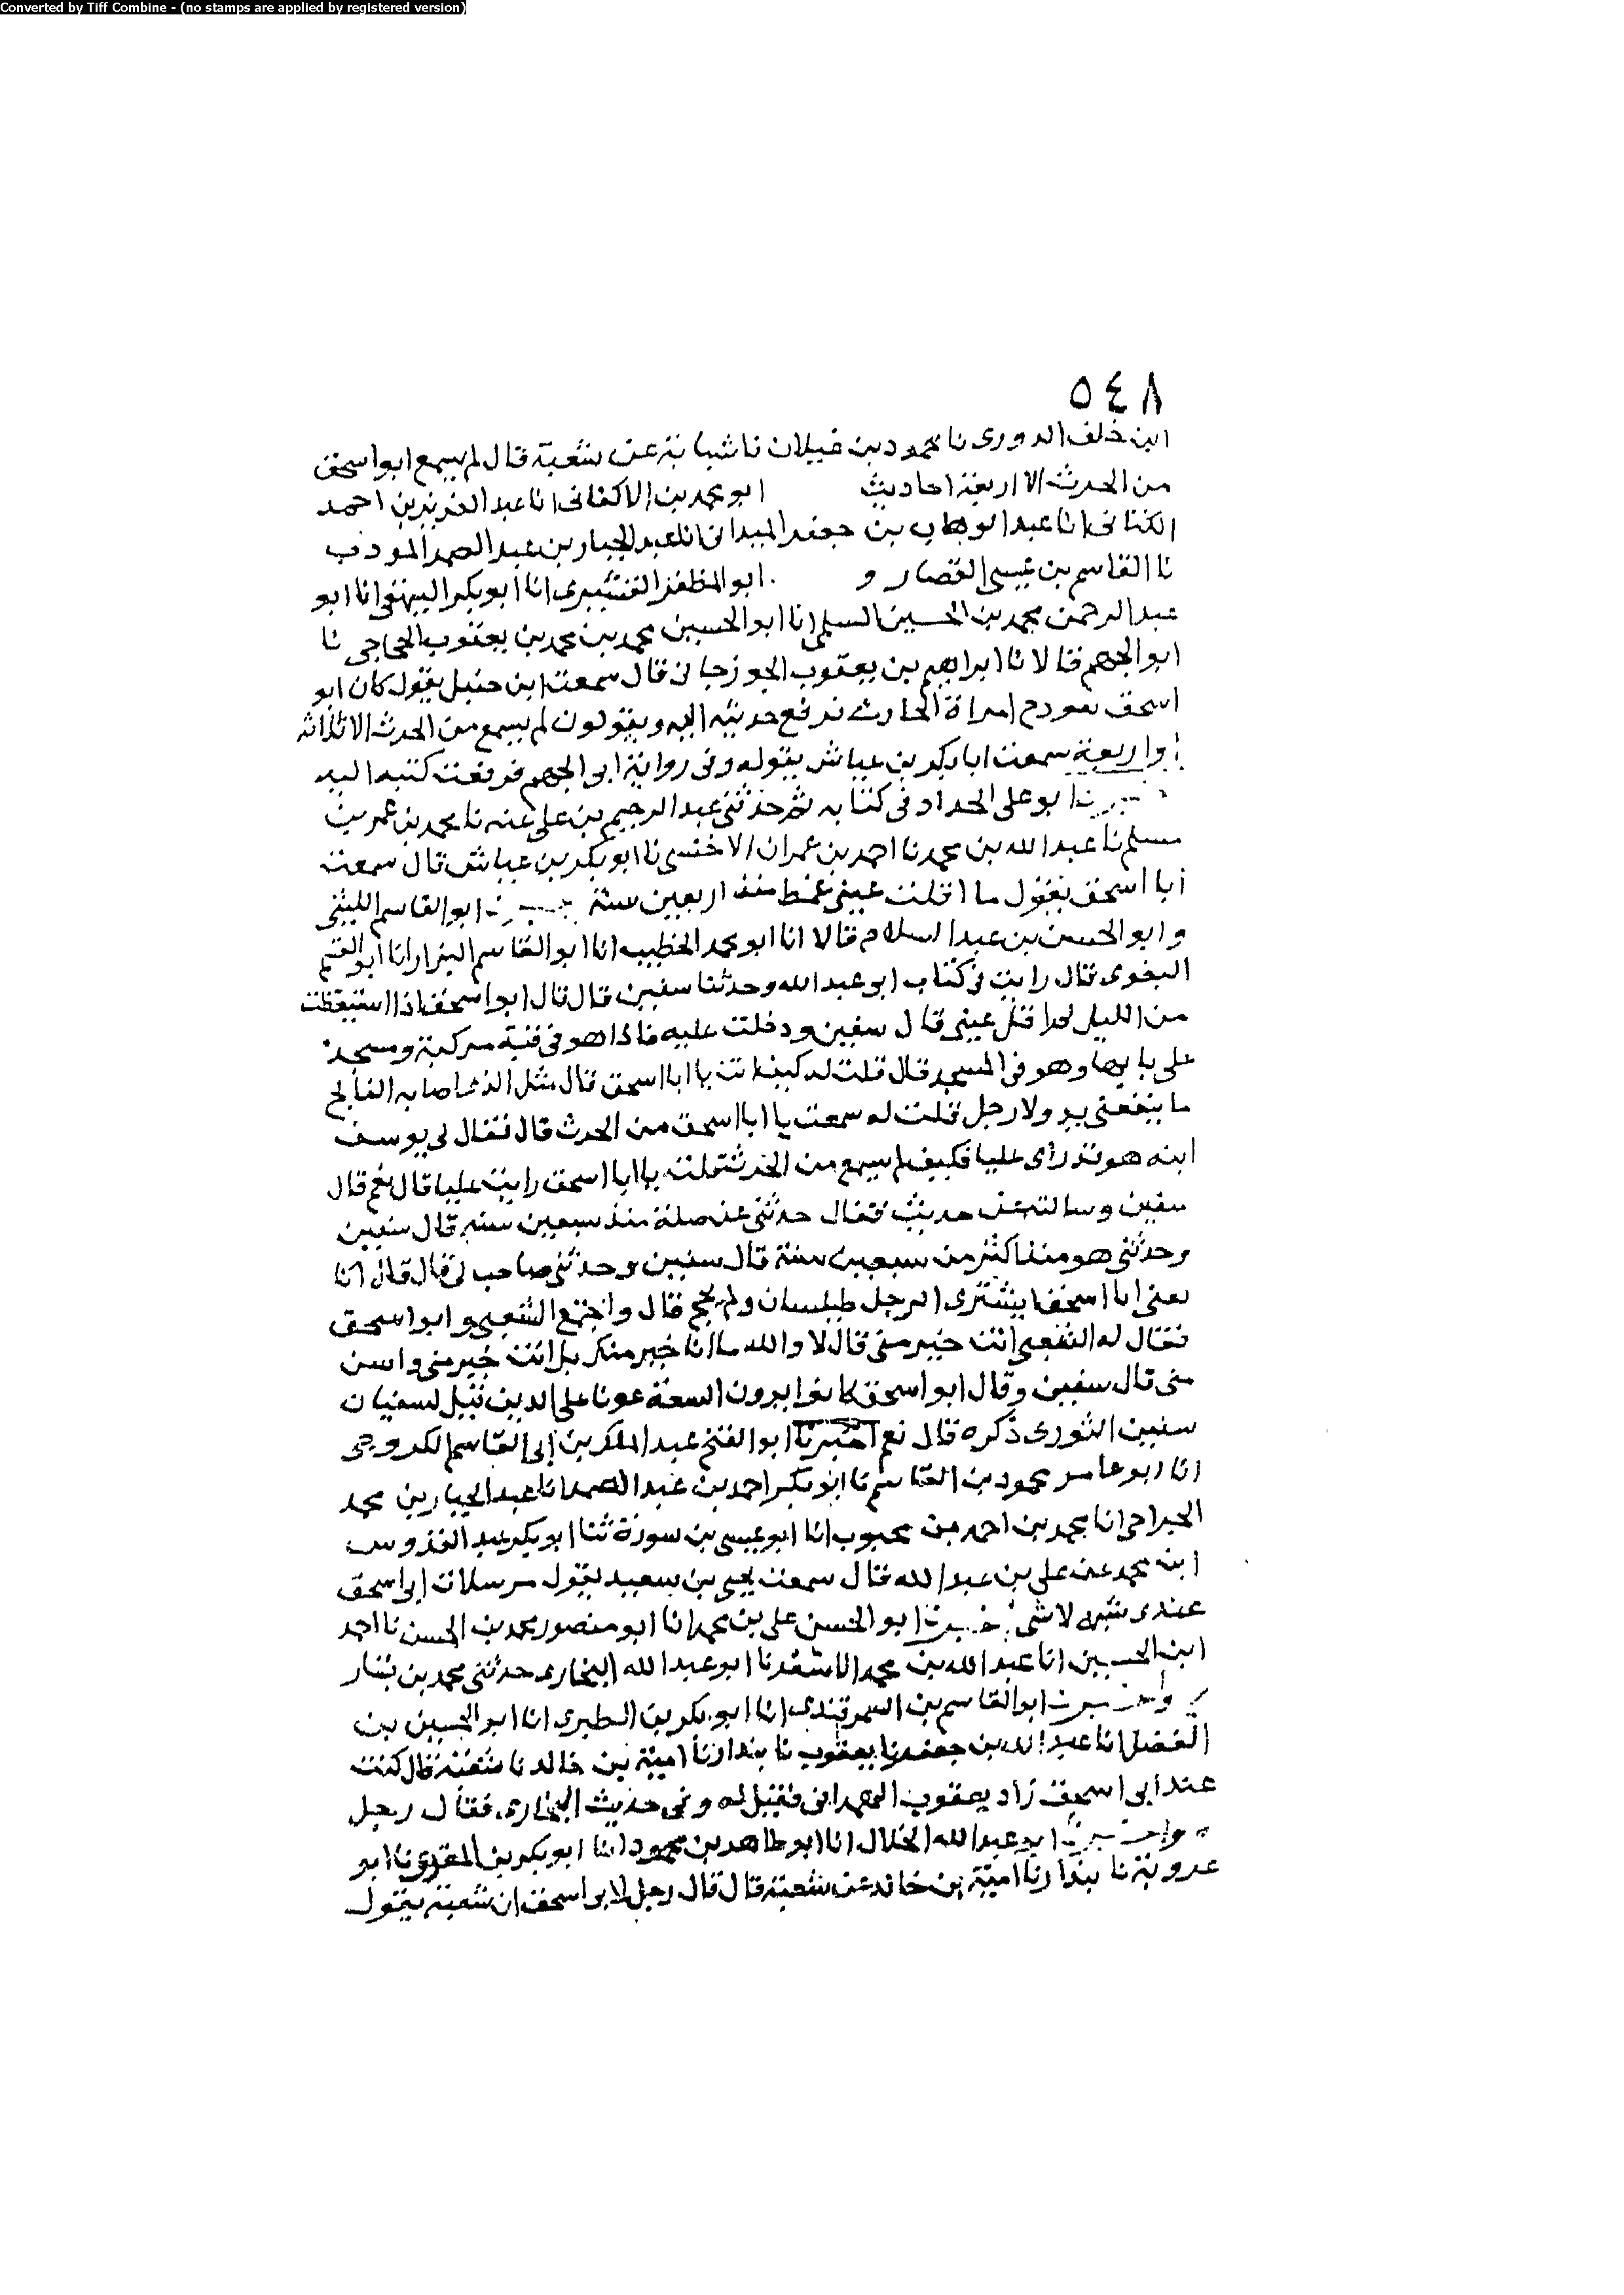 Converted by Tiff Combine - (no stamps are applied by registered version)
٥٤٨
ابن خلف الدورى نا محمود بن غيلان نا شبابة عن شعبة قال لم يسمع ابو اسحق
من الحرث الا اربعة احاديث ابو محمد بن الاكفانى انا عبد العزيز بن احمد
الكتانى انا عبد الوهاب بن جعفر الميدانى انا عبد الجبار بن عبد الصمد المودب
نا القاسم بن عيسى القصار و ابو المظفر القشيرى انا ابو بكر البيهقى انا ابو
عبد الرحمن محمد بن الحسين السلمى انا ابو الحسين محمد بن محمد بن يعقوب الحجاجى نا
ابو الجهم قالا نا ابراهيم بن يعقوب الجوزجانى قال سمعت ابن حنبل يقول كان ابو
اسحق تزوج امراة الحارث فدفع حديثه اليه ويقولون لم يسمع من الحرث الا ثلاثة
او اربعة سمعت ابا بكر بن عياش يقوله وفى رواية ابو الجهم فرفعت كتبه اليه
ابو على الحداد فى كتابه ثم حدثنى عبد الرحيم بن على عنه نا محمد بن عمر بن
مسلم نا عبد الله بن محمد نا احمد بن عمران الاخنسى نا ابو بكر بن عياش قال سمعت
ابا اسحق يقول ما اقلت عينى غمضا منذ اربعين سنة ابو القاسم الليثى
و ابو الحسن بن عبد السلام قالا انا ابو محمد الخطيب انا ابو القاسم البزار انا ابو القسم
البغوى قال رايت فى كتاب ابو عبد الله وحدثنا سفين قال قال ابو اسحق اذا استيقظت
من الليل لم اقل عينى قال سفين ودخلت عليه فاذا هو فى قبة تركية ومسجد
على بابها وهو فى المسجد قال قلت له كيف انت يا ابا اسحق قال مثل الذى اصابه الفالج
ما ينفعنى يد ولا رجل قلت له سمعت يا ابا اسحق من الحرث قال فقال لى يوسف
ابنه هو قد راى عليا فكيف لم يسمع من الحرث قلت يا ابا اسحق رايت عليا قال نعم قال
سفين وسالته عن حديث فقال حدثنى عن صلة منذ سبعين سنة قال سفين
وحدثنى هو منذ اكثر من سبعين سنة قال سفين وحدثنى صاحب لى قال قال انا
يعنى ابا اسحق ايشترى الرجل طيلسان ولم يحج قال واجتمع الشعبى و ابو اسحق
فقال له الشعبى انت خير منى قال لا والله ما انا خير منك بل انت خير منى واسن
منى قال سفين وقال ابو اسحق كانوا يرون السعة عونا على الدين قيل لسفيان
سفين الثورى ذكره قال نعم اخبرنا ابو الفتح عبد الملك بن ابى القاسم الكروجى
انا ابو عامر محمود بن القاسم نا ابو بكر احمد بن عبد الصمد انا عبد الجبار بن محمد
الجراحى انا محمد بن احمد بن محبوب انا ابو عيسى بن سورة ثنا ابو بكر عبد القدوس
ابن محمد عن على بن عبد الله قال سمعت يحيى بن سعيد يقول مرسلات ابى اسحق
عندى شبه لا شى اخبرنا ابو الحسن على بن محمد انا ابو منصور محمد بن الحسن نا احمد
ابن الحسين انا عبد الله بن محمد الاشقر نا ابو عبد الله البخارى حدثنى محمد بن بشار
واخبرنا ابو القاسم بن السمرقندى انا ابو بكر بن الطبرى انا ابو الحسين بن
الفضل انا عبد الله بن جعفر نا يعقوب نا بندار نا امية بن خالد نا شعبة قال كنت
عند ابى اسحق زاد يعقوب الهمدانى فقيل له وفى حديث البخارى فقال رجل
واخبرنا ابو عبد الله الخلال انا ابو طاهر بن محمود انا ابو بكر بن المقرى نا ابو
عروبة نا بندار نا امية بن خالد عن شعبة قال قال رجل لابو اسحق ان شعبة يقول